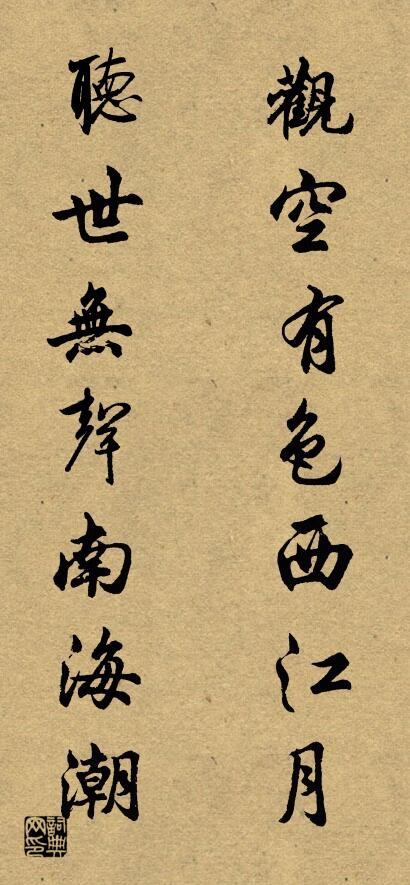 觀空有色西江月
聽世無聲南海潮
詞典网印